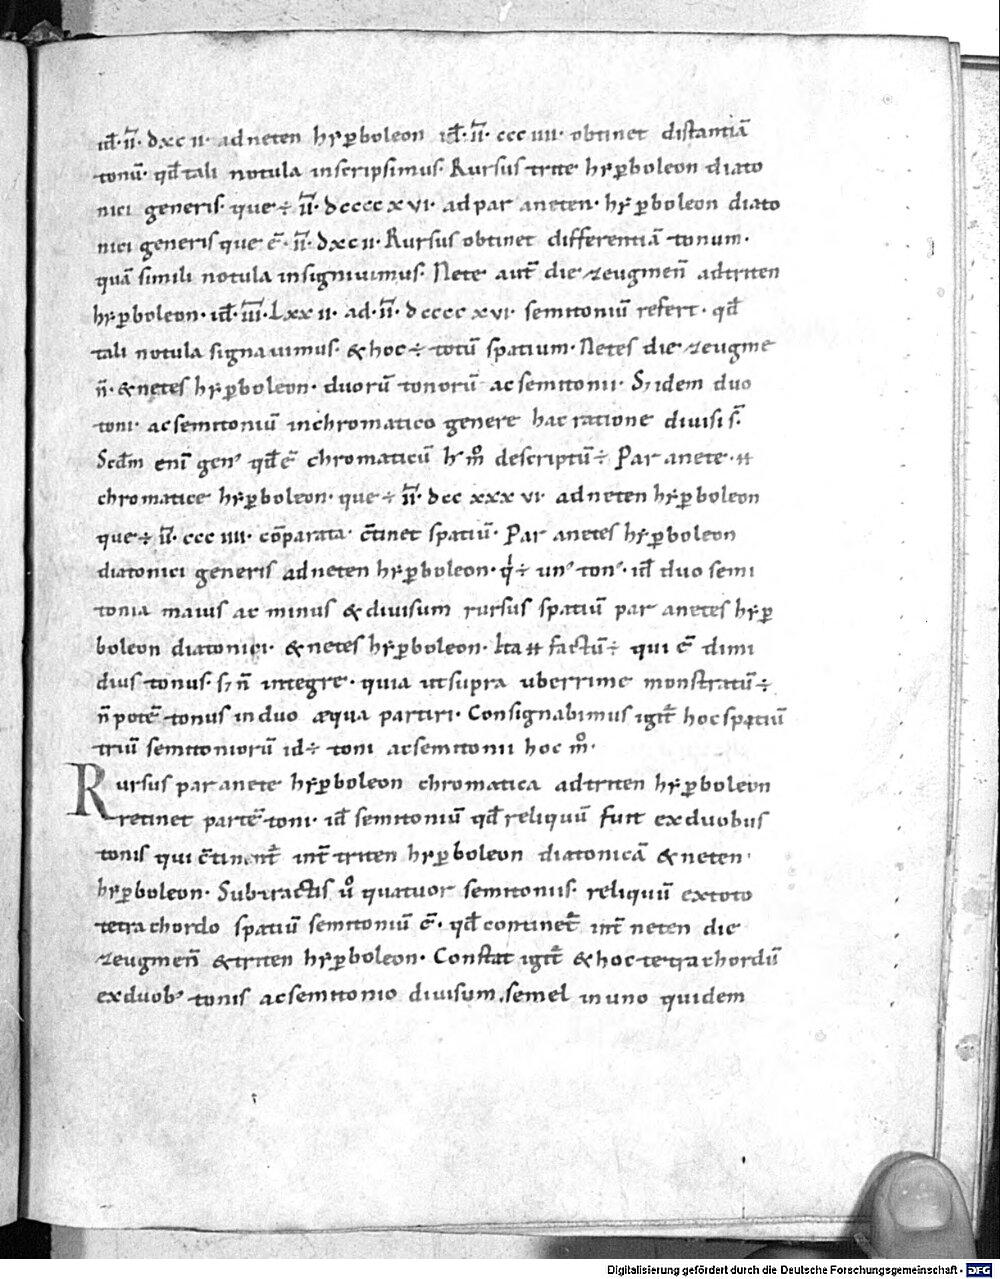 id̄·īī·dxcii· ad neten hẏꝑboleon id̄·īī·ccciiii· obtinet distantiā
tonū· qd̄ tali notula inscripsimus· Rursus trite hẏꝑboleon diato
nici generis· que ÷ īī·dccccxvi· ad par aneten· hẏꝑboleon diato
nici generis que ē·īī·dxcii· Rursus obtinet differentiā tonum·
quā simili notula insignivimus· Nete aut̄ die zeugmen̄ ad triten
hẏꝑboleon· id̄·īīī·Lxxii· ad·īī·dccccxvi· semitoniū refert· qd̄
tali notula signavimus· & hoc ÷ totū spatium· Netes die zeugme
n̄· & netes hẏꝑboleon· duorū tonorū ac semitonii· Sꝫ idem duo
toni· ac semitoniū in chromatico genere hac ratione divisi s̄·
Scd̄m eni̅ genꝰ qd̄ ē chromaticū h̄ m̊ descriptū ÷ Par anete·
chromatice hẏꝑboleon· que ÷ īī·dccxxxvi· ad neten hẏꝑboleon
que ÷ īī·ccciiii· cōparata· c̄tinet spatiū· Par anetes hẏꝑboleon
diatonici generis ad neten hẏꝑboleon· q̇ ÷ unꝰ tonꝰ· id̄ duo semi
tonia maius ac minus & divisum rursus spatiū par anetes hẏꝑ
boleon diatonici· & netes hẏꝑboleon· Ita factū ÷ qui ē dimi
dius tonus· sꝫ n̄ integre· quia ut supra uberrime monstratū ÷
n̄ potē tonus in duo æqua partiri· Consignabimus igit̄ hoc spatiū
triū semitoniorū id ÷ toni ac semitonii hoc m̊·
Rursus par anete hẏꝑboleon chromatica ad triten hẏꝑboleon
retinet partē toni· id̄ semitoniū qd̄ reliquū fuit ex duobus
tonis qui c̄tinent̄ int̄ triten hẏꝑboleon diatonicā & neten·
hẏꝑboleon· Subtractis ů quatuor semitoniis· reliquū ex toto
tetrachordo spatiū semitoniū ē· qd̄ continet̄ int̄ neten die
zeugmen̄ & triten hẏꝑboleon· Constat igit̄ & hoc tetrachordū
ex duobꝰ tonis ac semitonio divisum, semel in uno quidem
Digitalisierung gefördert durch die Deutsche Forschungsgemeinschaft - DFG